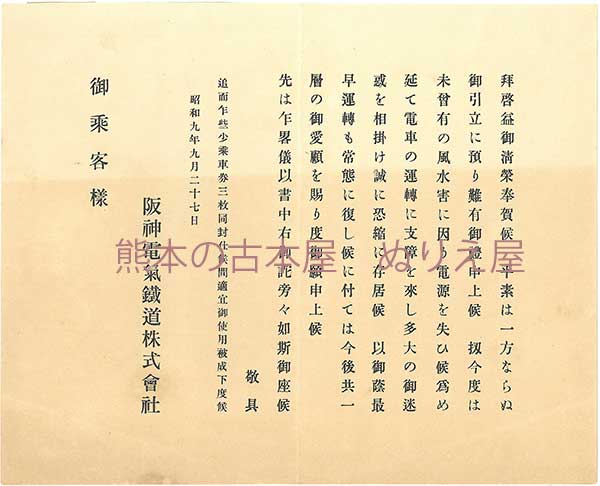 拝啓益御清榮奉賀候 平素は一方ならぬ
御引立に預り難有御禮申上候 扨今度は
未曾有の風水害に因り電源を失ひ候爲め
延て電車の運轉に支障を來し多大の御迷
惑を相掛け誠に恐縮に存居候 以御蔭最
早運轉も常態に復し候に付ては今後共一
層の御愛顧を賜り度御願申上候
先は乍畧儀以書中右御詫旁々如斯御座候
敬具
追而乍些少乘車券三枚同封仕候間適宜御使用被成下度候
昭和九年九月二十七日
阪神電氣鐵道株式會社
御乘客樣
熊本の古本屋 ぬりえ屋